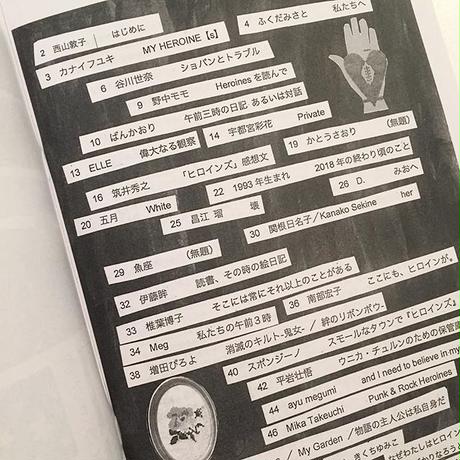 2 西山敦子｜はじめに
4 ふくだみさと 私たちへ
3 カナイフユキ MY HEROINE【s】
6 谷川世奈 ショパンとトラブル
9 野中モモ Heroinesを読んで
10 ばんかおり 午前三時の日記 あるいは対話
14 宇都宮彩花 Private
13 ELLE 偉大なる観察
19 かとうさおり （無題）
16 筑井秀之 「ヒロインズ」感想文
22 1993年生まれ 2018年の終わり頃のこと
20 五月 White
26 D. みおへ
25 昌江 瑠 壊
30 関根日名子／Kanako Sekine her
29 魚座 （無題）
32 伊藤眸 読書、その時の絵日記
33 椎葉博子 そこには常にそれ以上のことがある
36 南部宏子 ここにも、ヒロインが。
34 Meg 私たちの午前3時
38 増田ぴろよ 消滅のキルト-鬼女- / 絆のリボンボウ-
40 スポンジーノ スモールなタウンで『ヒロインズ』
42 平岩壮悟 ウニカ・チュルンのための保管
44 ayu megumi and I need to believe in my
46 Mika Takeuchi Punk & Rock Heroines
/ My Garden / 物語の主人公は私自身だ
きくちゆみこ
なぜわたしはヒロイン